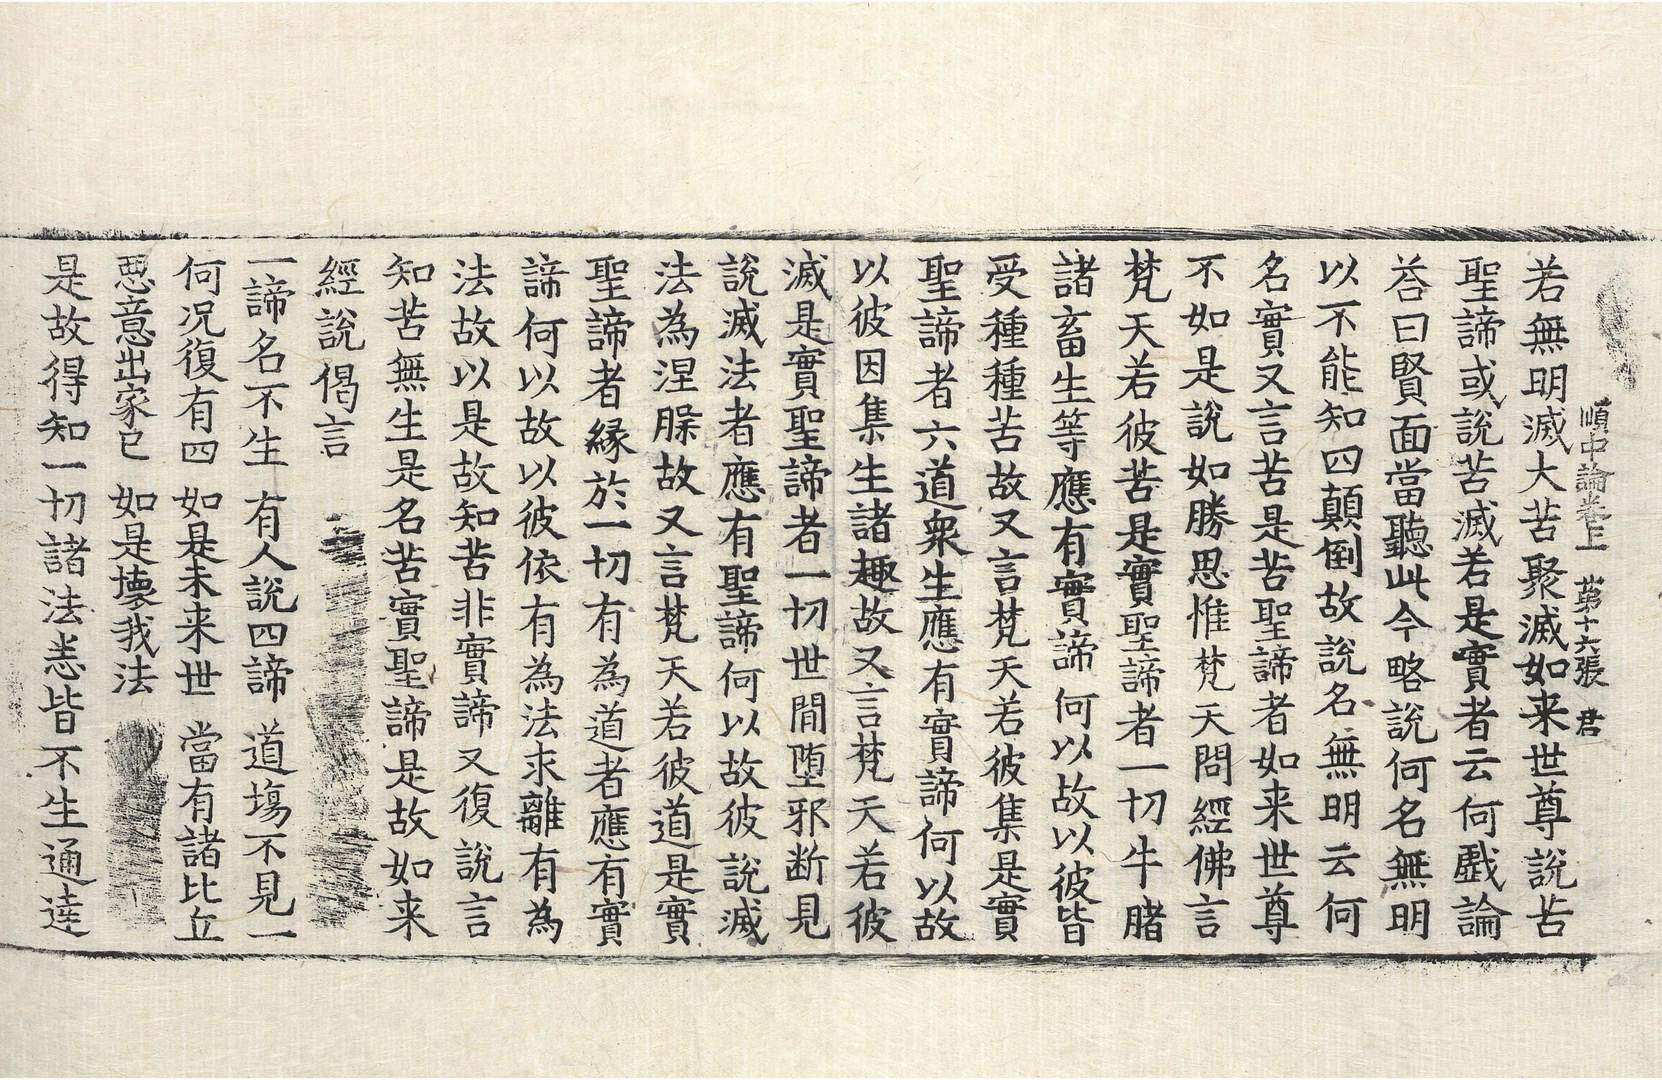 順中論卷上　第十六張　君
若無明滅大苦聚滅如来世尊說苦
聖諦或說苦滅若是實者云何戱論
荅曰賢面當聽此今略說何名無明
以不能知四顛倒故說名無明云何
名實又言苦是苦聖諦者如来世尊
不如是說如勝思惟梵天問經佛言
梵天若彼苦是實聖諦者一切牛賭
諸畜生等應有實諦何以故以彼皆
受種種苦故又言梵天若彼集是實
聖諦者六道衆生應有實諦何以故
以彼因集生諸趣故又言梵天若彼
滅是實聖諦者一切世間堕邪断見
說滅法者應有聖諦何以故彼說滅
法為涅槃故又言梵天若彼道是實
聖諦者緣於一切有為道者應有實
諦何以故以彼依有為法求離有為
法故以是故知苦非實諦又復說言
知苦無生是名苦實聖諦是故如来
經說偈言
一諦名不生　有人說四諦　道場不見一
何况復有四　如是未来世　當有諸比丘
思意出家已　如是壞我法
是故得知一切諸法悉皆不生通達